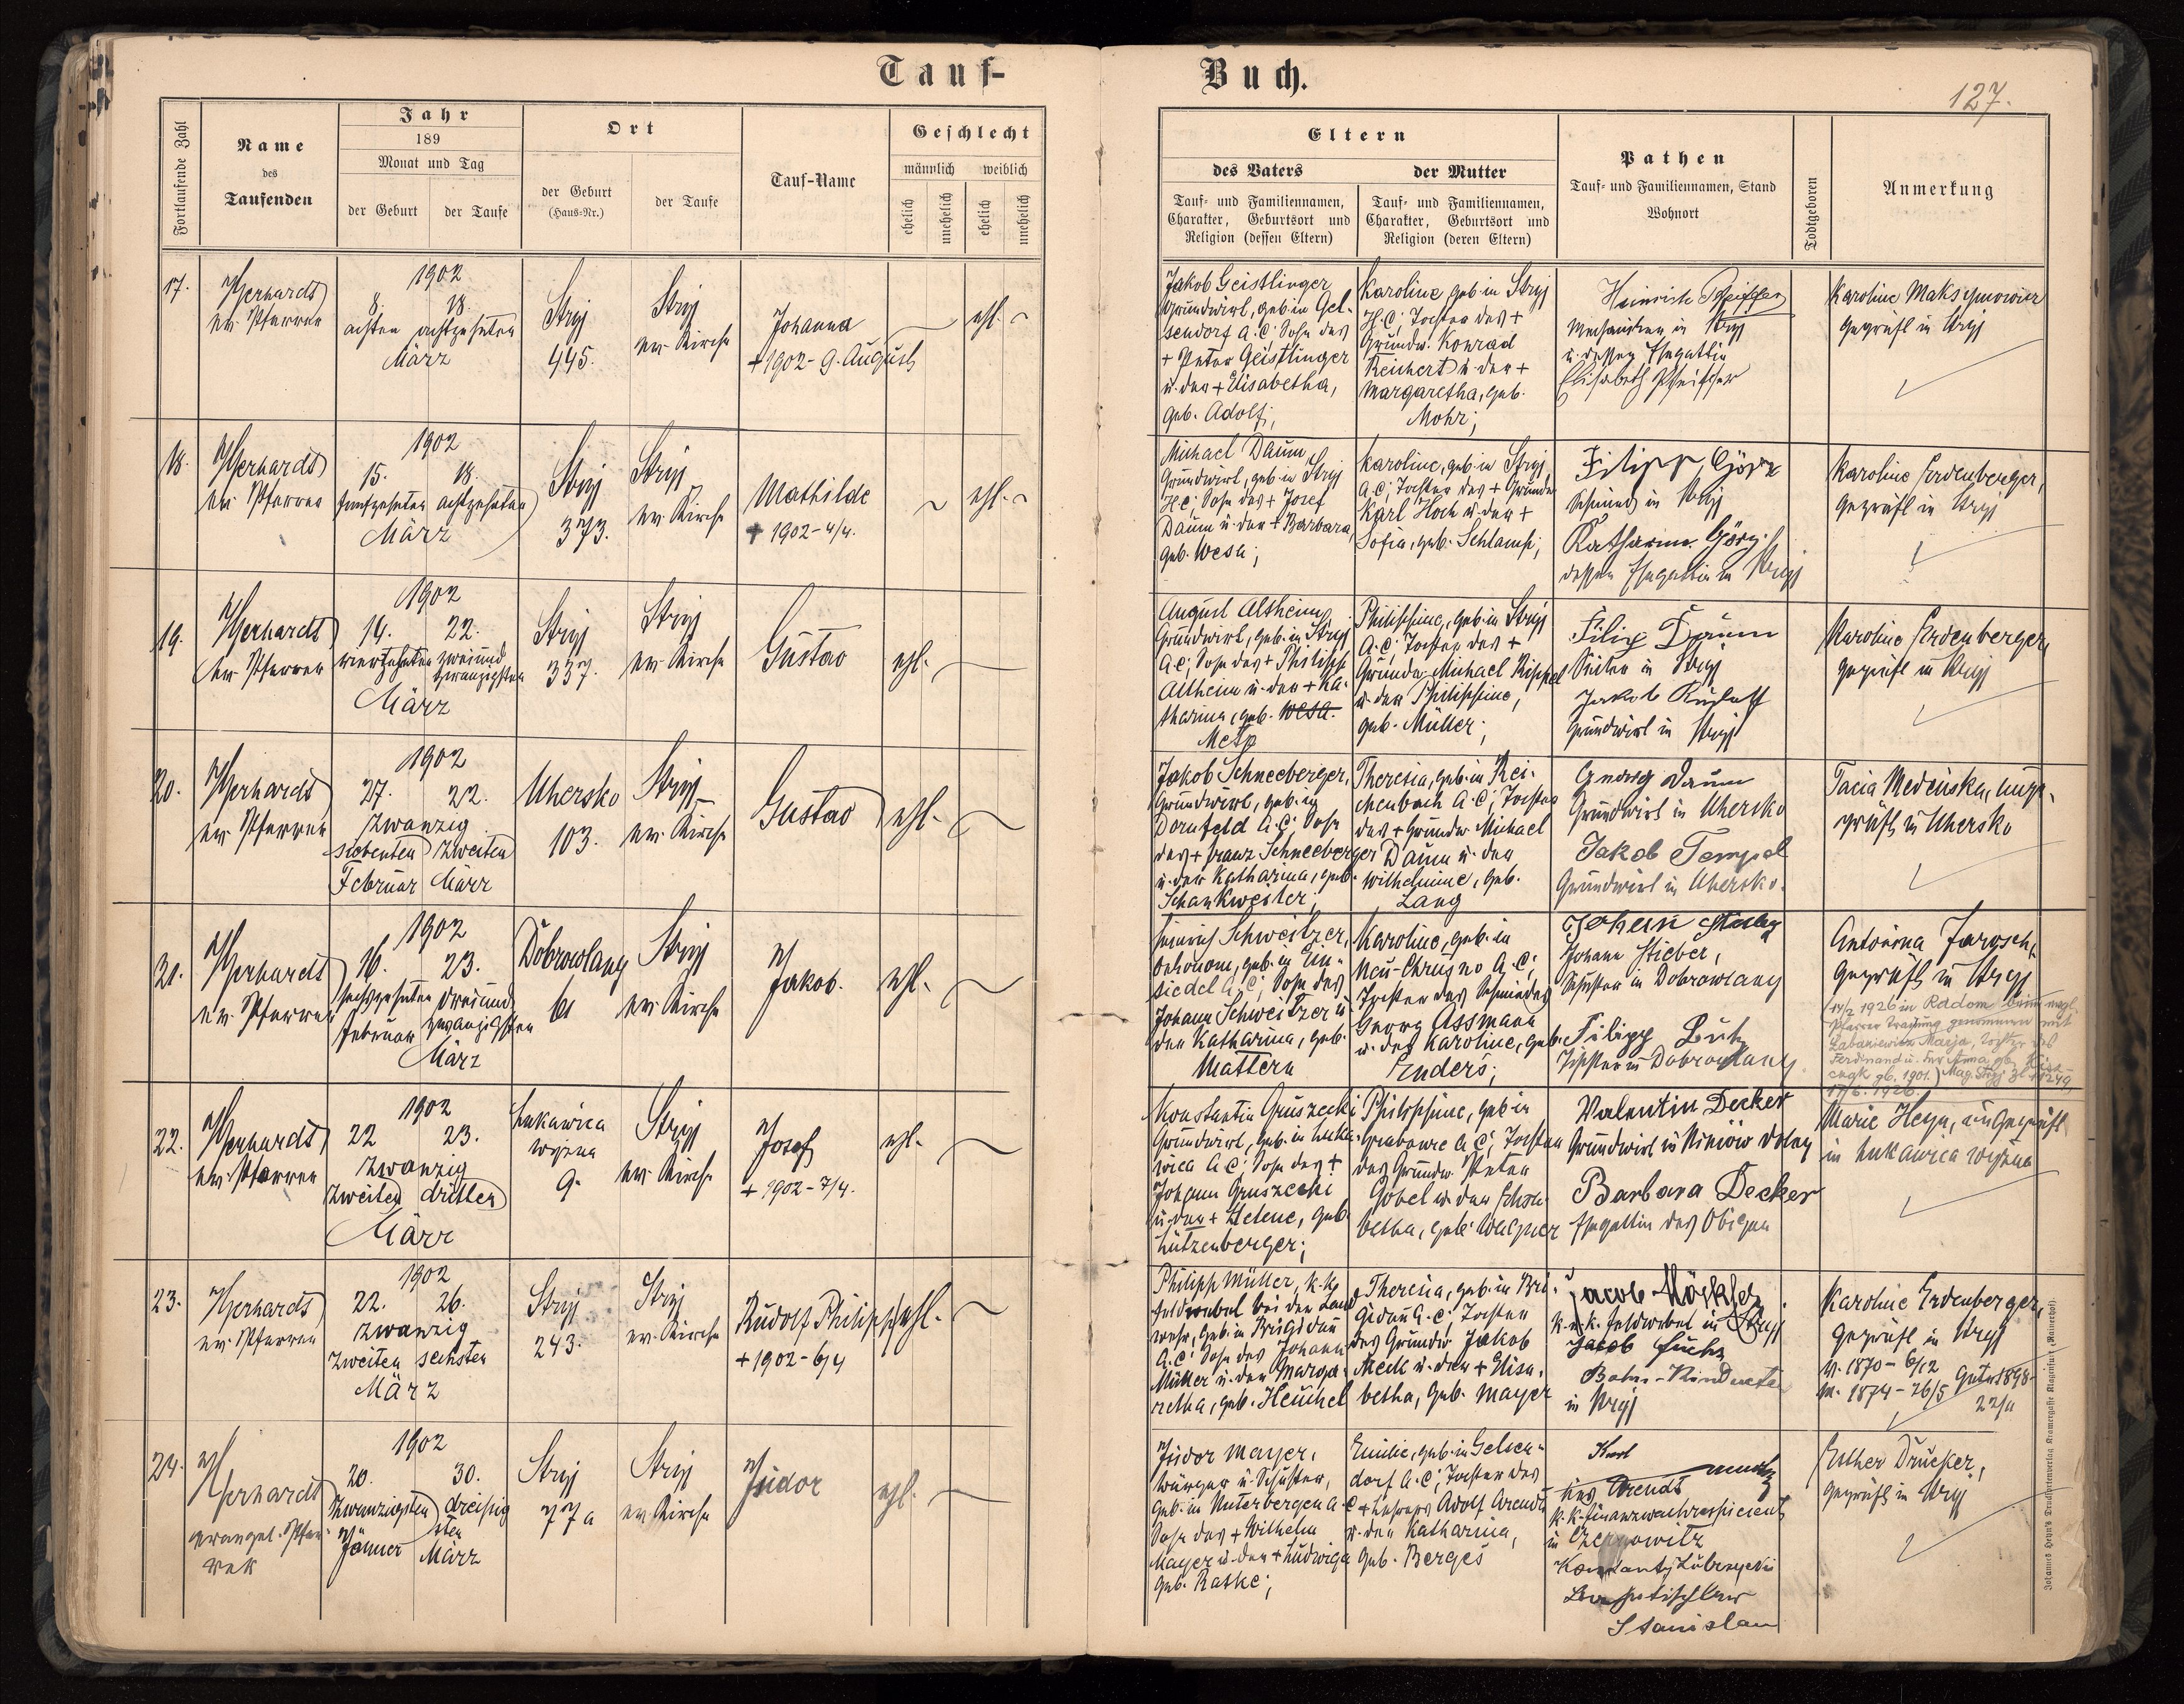 Tauf-
Buch.
127.
Fortlaufende Zahl
Name
des
Taufenden
Jahr
189
Monat und Tag
der Geburt
der Taufe
Ort
der Geburt
(Haus-Nr.)
der Taufe
Tauf-Name
Geschlecht
männlich
weiblich
ehelich
unehelich
ehelich
unehelich
Eltern
des Vaters
Tauf- und Familiennamen,
Charakter, Geburtsort und
Religion (dessen Eltern)
der Mutter
Tauf- und Familiennamen,
Charakter, Geburtsort und
Religion (deren Eltern)
Pathen
Tauf- und Familiennamen, Stand
Wohnort
Todtgeboren
Anmerkung
17.
Gerhardt
ev. Pfarrer
1902
8. 18.
achten achtzehnten
März
Stryj
445.
Stryj
ev. Kirche
Johanna
+ 1902 - 9. August
ehl.
Jakob Geistlinger
Grundwirt, geb. in Gel-
sendorf A.C; Sohn des
+ Peter Geistlinger
u. der + Elisabetha,
geb. Adolf;
Karoline geb. in Stryj
H.C; Tochter des +
Grundw. Konrad
Reichert u. der +
Margaretha, geb.
Mohr;
Heinrich Pfeiffer
in Stryj
u. dessen Ehegattin
Elisabeth Pfeiffer
Karoline Maksymowicz
geprüft in Stryj
18.
Gerhardt
ev. Pfarrer
1902
15. 18.
fünfzehnten achtzehnten
März
Stryj
373.
Stryj
ev. Kirche
Mathilde
+ 1902 - 4/4.
ehl.
Michael Daum
Grundwirt, geb. in Stryj
H.C; Sohn des + Josef
Daum u. der + Barbara,
geb. Wesa;
Karoline, geb. in Stryj
A.C; Tochter des + Grundw
Karl Hoch u. der +
Sofia, geb. Schlamp;
Filipp Görz
Schmied in Stryj
Katharina Görz
dessen Ehegattin in Stryj
Karoline Erdenberger,
geprüft in Stryj
19.
Gerhardt
ev. Pfarrer
1902
14. 22.
vierzehnten zweiund
zwanzigsten
März
Stryj
337.
Stryj
ev. Kirche
Gustav
ehl.
August Altheim
Grundwirt, geb. in Stryj
A.C; Sohn des + Philipp
Altheim u. der + Ka-
tharina, geb. Wesa.
Metz
Philippine, geb. in Stryj
A.C; Tochter des +
Grundw. Michael Kippel
u. der Philippine,
geb. Müller;
Filip Daum
in Stryj
Jakob Rudolf
Grundwirt in Stryj
Karoline Erdenberger,
geprüft in Stryj
20.
Gerhardt
ev. Pfarrer
1902
27. 22.
zwanzig
siebenten zweiten
Februar März
Uhersko
103.
Stryj
ev. Kirche
Gustav
ehl.
Jakob Schneeberger,
Grundwirt, geb. in
Dornfeld A.C; Sohn
des + Franz Schneeberger
u. der Katharina, geb.
Schankweiler;
Theresia, geb. in Rei-
chenbach A.C; Tochter
des + Grundw. Michael
Daum u. der
Wilhelmine, geb.
Lang
Georg Daum
Grundwirt in Uhersko
Jakob Tempel
Grundwirt in Uhersko.
Tacia Medeiska, unge-
prüft in Uhersko
21.
Gerhardt
ev. Pfarrer
1902
16. 23.
sechzehnten dreiund
Februar zwanzigsten
März
Dobrowlany
61
Stryj
ev. Kirche
Jakob.
ehl.
Heinrich Schweitzer,
Oekonom, geb. in Ein-
siedel A.C; Sohn des
Johann Schweitzer u.
der Katharina, geb.
Mattern
Karoline, geb. in
Neu-Chrusno A.C;
Tochter des Schmiedes
Georg Assmann
u. der Karoline, geb.
Enders;
Johann Stieber,
Schuster in Dobrowlany
Filipp Lutz
Tischler in Dobrowlany
Antonina Jarosch,
geprüft in Stryj
14/2 1926 in Radom beim evngl.
Pfarrer Trauung genommen mit
Marja, Tochter des
Ferdinand u. der Anna geb.
gb. 1901.) Mag. Stryj
17/6. 1926.
22.
Gerhardt
ev. Pfarrer
1902
22 23.
zwanzig
zweiten dritten
März
Lukawica
wyżna
9.
Stryj
ev. Kirche
Josef
+ 1902 - 7/4.
ehl.
Konstantin Gruszecki
Grundwirt, geb. in Luka-
wica A.C; Sohn des +
Johann Gruszecki
u. der + Helene, geb.
Lutzenberger;
Philippine, geb. in
Grabowce A.C; Tochter
des Grundw. Peter
Göbel u. der Elisa-
betha, geb. Wagner
Valentin Decker
Grundwirt in Niniow dolny
Barbara Decker
Ehegattin des Obigen
Marie Heyn, ungeprüft
in Lukawica wyżna
23.
Gerhardt
ev. Pfarrer
1902
22. 26.
zwanzig
zweiten sechsten
März
Stryj
243.
Stryj
ev. Kirche
Rudolf Philipp
+ 1902 - 6/4
ehl.
Philipp Müller, k.k.
Feldwebel bei der Land-
wehr, geb. in Brigidau
A.C; Sohn des Johann
Müller u. der Marga-
retha, geb. Heuchel
Theresia, geb. in Bri-
gidau A.C; Tochter
des Grundw. Jakob
Meck u. der + Elisa-
betha, geb. Mayer
k.u.k. Feldwebel in Stryj
Jacob Fuchs
Bahn-Kondukteur
in Stryj
Karoline Erdenberger,
geprüft in Stryj
V. 1870 - 6/12
M. 1874 - 26/5 Getr. 1898
22/11
24.
Gerhardt
evangel. Pfar-
rer
1902
20. 30.
zwanzigsten dreißig
sten
Jänner März
Stryj
77 a
Stryj
ev. Kirche
Isidor
ehl.
Isidor Mayer,
u. Schuster,
geb. in Unterbergen A.C
Sohn des + Wilhelm
Mayer u. der + Ludwiga
geb. Raske;
Emilie, geb. in Gelsen-
dorf A.C; Tochter des
+ Lehrers Adolf Arendt
u. der Katharina,
geb. Berges
Karl
Arendt
k.k. Finanzwachrespicient
in Czernowitz
Stanislau
Esther Drucker,
geprüft in Stryj
Johannes Heyn's Druckerei-Verlag Kramergasse Klagenfurt (Rainerhof).